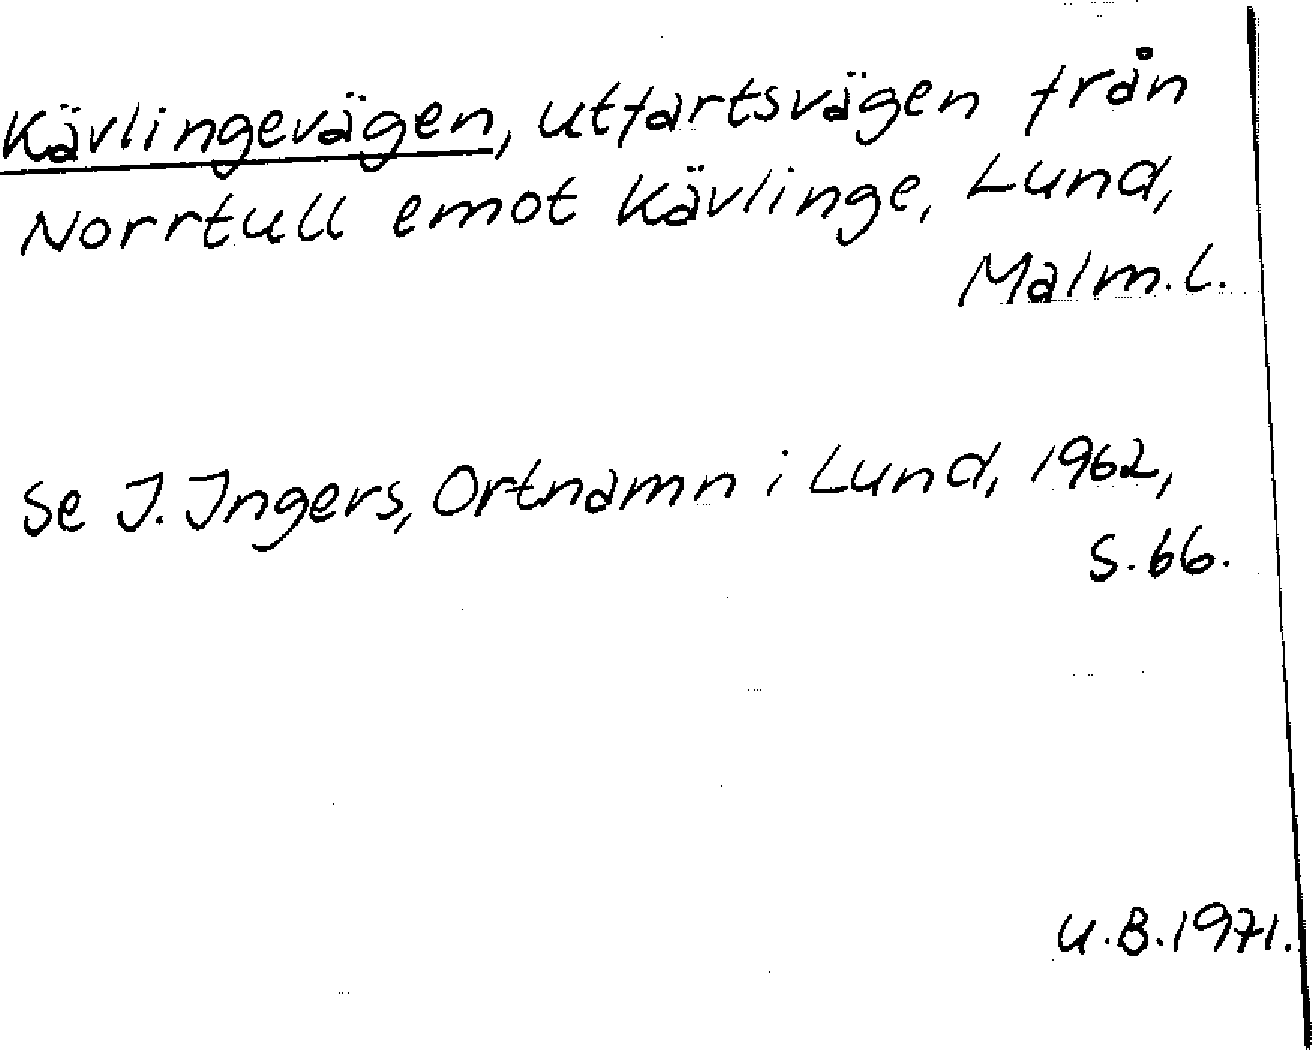 Kävlingevägen, utfartsvägen från
Norrtull emot Kävlinge, Lund,
Malm.l.
Se I. Ingers, Ortnamn i Lund, 1962,
s. 66.
U.B. 1971.